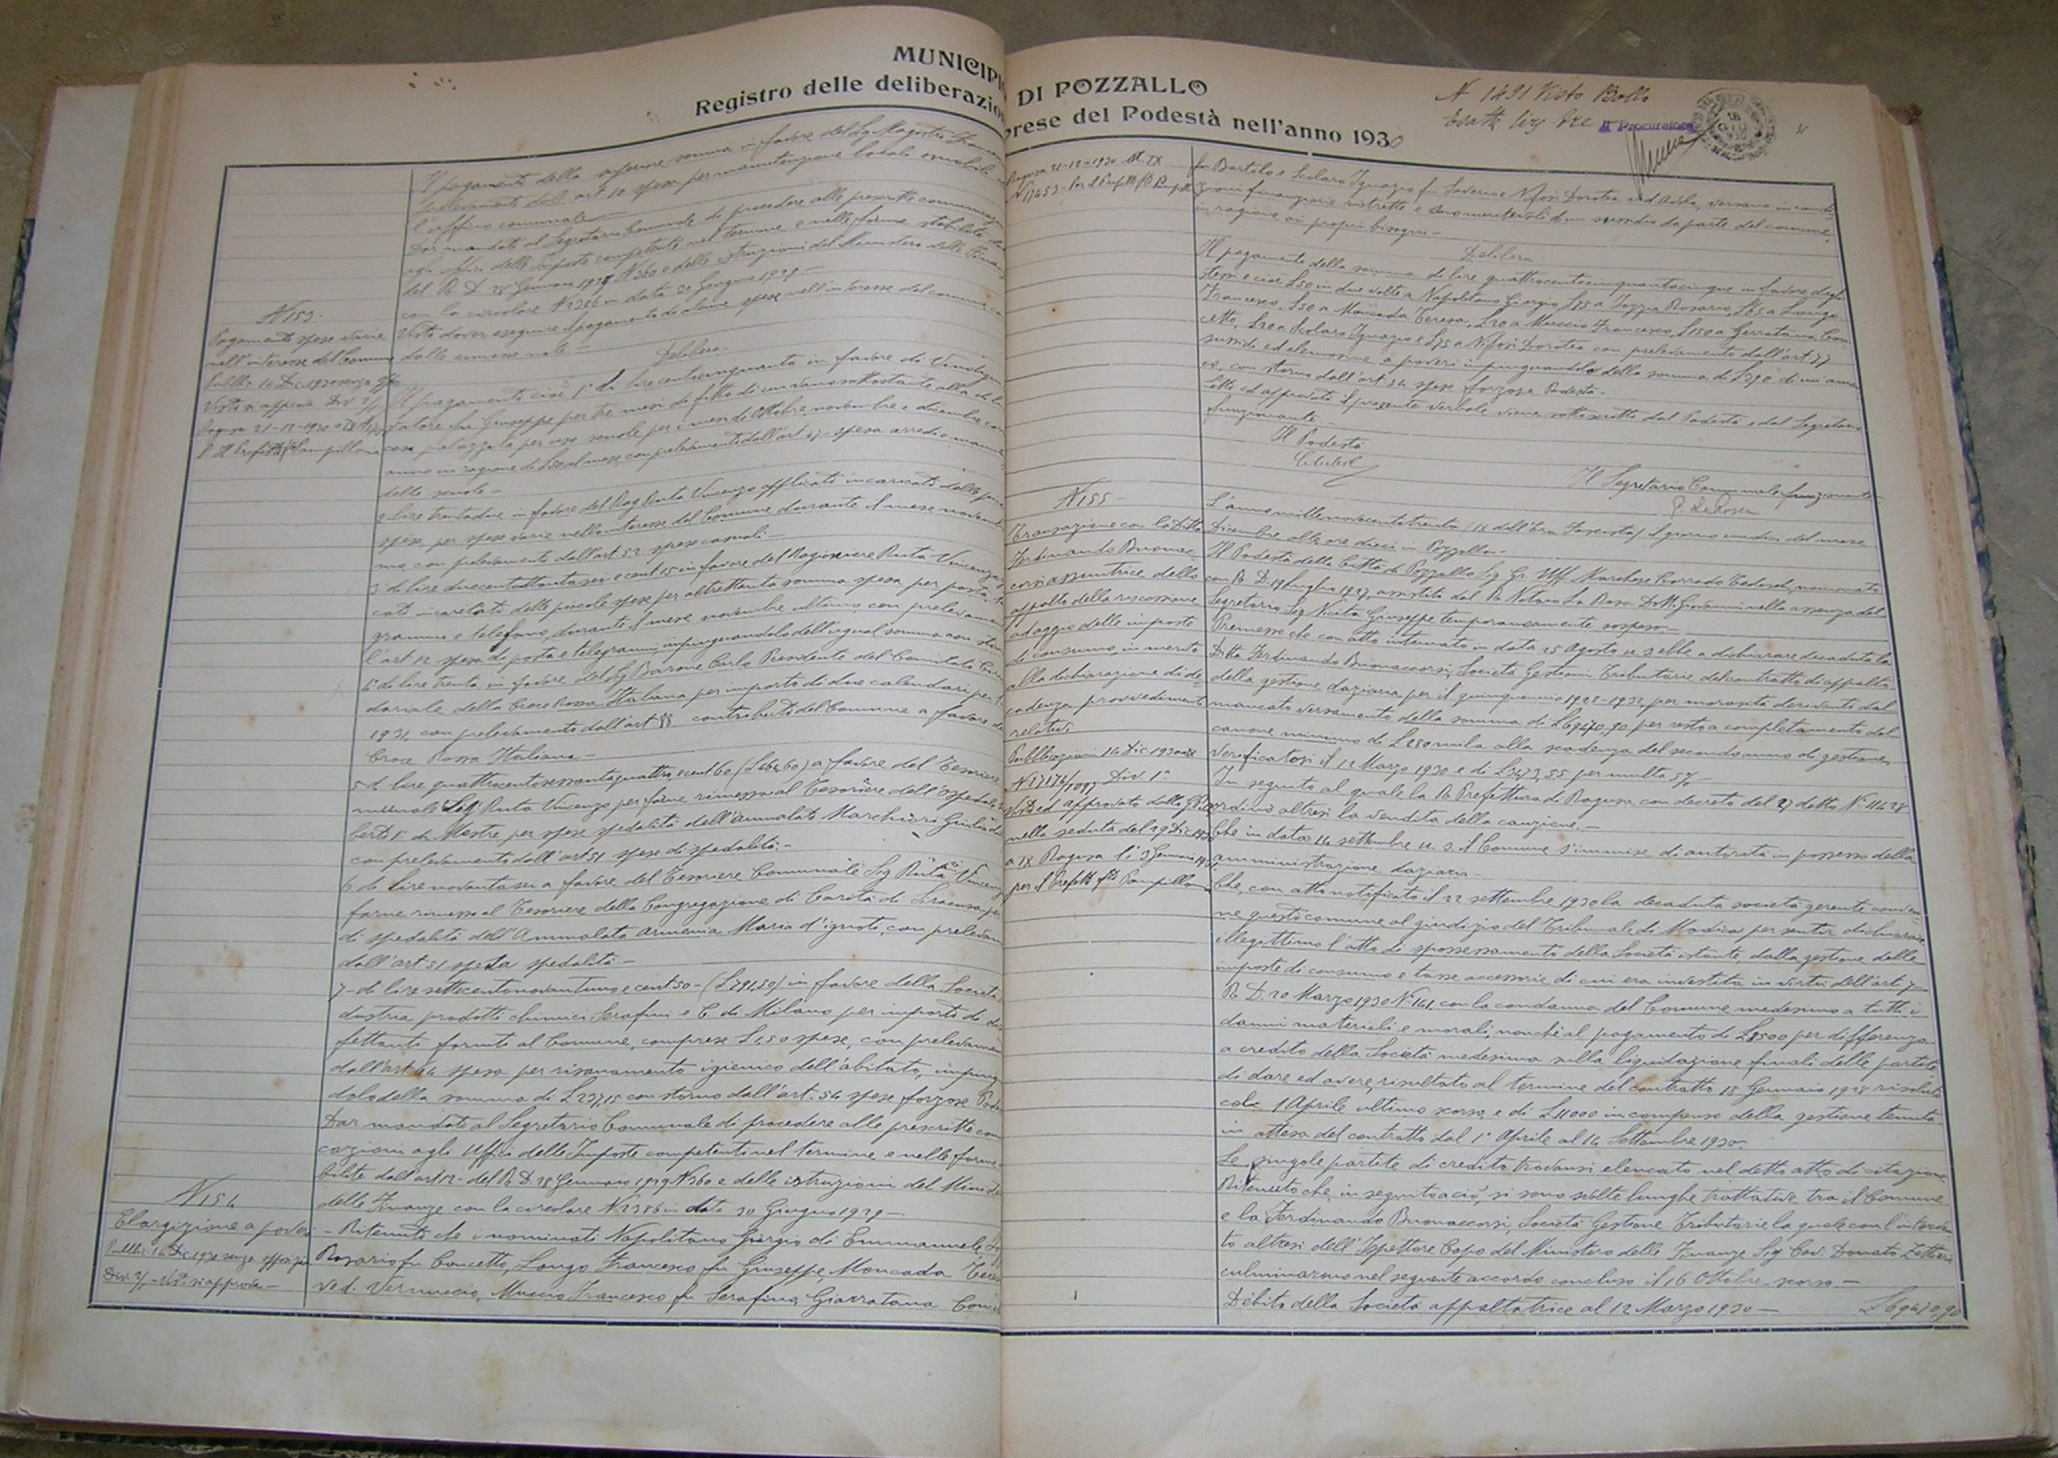 MUNICIPI DI POZZALLO
Registro delle deliberazio prese del Podestà nell'anno 1930
N 1491 Visto Bollo
Il Procuratore
Il pagamento della superiore somma in favore del Sig.
prelevandoli dall'art 10 spese per manutenzione locali e mobili
l'ufficio comunale
Dar mandato al Segretario Comunale di procedere alle prescritte comunicazioni
agli uffici delle Imposte competenti nel termine e nelle forme stabilite
del R. D. 28 Gennaio 1929 N 360 e delle istruzioni del Ministero delle Finan
con la circolare N 2386 in data 30 Giugno 1929 -
N 153
Pagamento spese varie
nell'interesse del Comune
Pubblic. 14 Dic 1930 senza
Visto si approva Div.
Ragusa 21-12-1930
Visto dover eseguire il pagamento di alcune spese nell'interesse del comune
dalle rimesse note -
Delibera
Il pagamento cioè 1° di lire centocinquanta in favore di
Giuseppe per tre mesi di fitto di un vano sottostante alla
casa palazzata per uso scuole per i mesi di Ottobre novembre e dicembre
anno in ragione di L 50 al mese con prelevamento dall'art 47 spesa arredi e manu
delle scuole -
2 lire trentadue in favore del Rag Ruta Vincenzo applicato incaricato delle
spese, per spese varie nell'interesse del Comune durante il mese novem
con prelevamento dall'art 52 spese casuali -
3 di lire duecentottantasei e cent 15 in favore del Ragioniere Ruta Vincenzo
cato incaricato delle piccole spese per altrettanta somma spesa per posta,
grammi e telefono, durante il mese novembre ultimo con prelevam
l'art 12 spese di posta e telegrammi, impinguandolo dell'ugual somma con
4° di lire trenta in favore del Sig Barone Carlo Presidente del Comitato
della Croce Rossa Italiana per importo di due calendari per
1931, con prelevamento dall'art 88 contributi del Comune a favore
Croce Rossa Italiana -
5 di lire quattrocentosessantaquattro e cent 60 (L 464,60) a favore del Tesoriere
munale Sig Ruta Vincenzo per farne rimessa al Tesoriere dell'Ospedale
berto 1° di Mestre per spese spedalità dell'ammalato Marchiori
con prelevamento dall'art 51 spese di spedalità -
6 di lire novantasei a favore del Tesoriere Comunale Sig Ruta Vincenzo
farne rimessa al Tesoriere della Congregazione di Carità di Siracusa per
di spedalità dell'Ammalato Armenia Maria d'ignoti, con prelevam
dall'art 51 spesa spedalità -
7 - di lire settecentonovantuno e cent 50 - (L 791,50) in favore della Società
dustria prodotti chimici Serafini e C. di Milano per importo di
fettante fornito al Comune, comprese L 1,50 spese, con prelevamen
dall'art 44 spesa per risanamento igienico dell'abitato, impin
dolo della somma di L 237,15 con storno dall'art. 54 spese forzose
Dar mandato al Segretario Comunale di procedere alle prescritte com
cazioni agli Uffici delle Imposte competenti nel termine e nelle forme
bilite dall'art 12 - del R. D 28 Gennaio 1929 N 360 e delle istruzioni del Minist
delle Finanze con la circolare N 2386 in data 30 Giugno 1929 -
N 154
Elargizione a poveri
Pubblic 14 Dic 1930 senza opposizioni
Div 2/ - Visto si approva -
- Ritenuto che i nominati Napolitano Giorgio di Emmanuele
Rosario fu Concetto, Longo Francesco fu Giuseppe, Moncada Teresa
ved. Vernuccio, Muccio Francesco fu Serafino, Giarratana Conce
Ragusa 21-12-1930 A IX
N 17453
fu Bartolo e Scolaro Ignazio fu Saverio e Nifosi Dorotea ved versano in condi
zioni finanziarie ristrette e sono meritevoli di un sussidio da parte del comune,
in ragione ai propri bisogni -
Delibera
Il pagamento della somma di lire quattrocentocinquantacinque in favore degli
stessi e cioè L 50 in due volte a Napolitano Giorgio L 75 a Rosario, L 65 a Longo
Francesco, L 50 a Moncada Teresa, L 20 a Muccio Francesco, L 150 a Gerratana Con
cetto, L 20 a Scolaro Ignazio e L 75 a Nifosi Dorotea con prelevamento dall'art 77
sussidi ed elemosine a poveri impinguandolo della somma di L 390 di
con storno dall'art 54 spese forzose Podestà -
Letto ed approvato il presente verbale viene sottoscritto dal Podestà e dal Segretario
funzionante
Il Podestà
Il Segretario Comunale funzionante
G. La Rosa
N 155
Transazione con la Ditta
Ferdinando Buonac
corsi assuntrice dello
appalto della riscossione
ad aggio delle imposte
di consumo in merito
alla dichiarazione di de
cadenza provvedimenti
relativi
Pubblicazioni 14 Dic 1930
Div 1ª
Visto ed approvato dalla
nella seduta del 29 Dic 1930
a IX Ragusa li 3 Gennaio
per il Prefetto
L'anno millenovecentotrenta (IX dell'Era Fascista) il giorno undici del mese
Dicembre alle ore dieci in Pozzallo -
Il Podestà della Città di Pozzallo Sig. Gr. Uff. Marchese Corrado Tedeschi, nominato
con R. D. 19 Luglio 1927, assistito dal R. Notaro La Rosa Dott. Giovanni nella assenza del
Segretario Sig Nicita Giuseppe temporaneamente sospeso -
Premesso che con atto intimato in data 25 Agosto u. s. ebbe a dichiarare decaduta la
Ditta Ferdinando Buonaccorsi, Società Gestioni Tributarie dal contratto di appalto
della gestione daziaria per il quinquennio 1928-1932, per morosità derivanti dal
mancato versamento della somma di L 69470,90 per resto a completamento del
canone minimo di L 280 mila alla scadenza del secondo anno di gestione,
verificatosi il 12 Marzo 1930 e di L 3473,55 per multa 5%
In seguito al quale la R. Prefettura di Ragusa con decreto del 27 detto N° 11428
ordinò altresì la vendita della cauzione. -
Che in data 14 settembre u. s. il Comune s'immise di autorità in possesso della
amministrazione daziaria -
Che, con atto notificato il 22 settembre 1930 la decaduta società gerente conven
ne questo comune al giudizio del Tribunale di Modica per sentir dichiarare
illegittimo l'atto di spossessamento della Società istante, dalla gestione delle
imposte di consumo e tasse accessorie di cui era investita in virtù dell'art 7
R. D. 20 Marzo 1930 N° 141, con la condanna del Comune medesimo a tutti i
danni materiali e morali, nonché al pagamento di L 8500 per differenza
a credito della Società medesima sulla liquidazione finali delle partite
di dare ed avere, risultato al termine del contratto 18 Gennaio 1928 risolutosi
col 1 Aprile ultimo scorso, e di L 11000 in compenso della gestione tenuta
in attesa del contratto dal 1° Aprile al 14 Settembre 1930 -
Le singole partite di credito trovansi elencate nel detto atto di citazione
Ritenuto che, in seguito a ciò, si sono svolte lunghe trattative tra il Comune
e la Ferdinando Buonaccorsi, Società Gestione Tributarie la quale con l'interven
to altresì dell'Ispettore Capo del Ministero delle Finanze Sig Cav. Donato
culminarono nel seguente accordo concluso il 16 Ottobre scorso -
Debito della Società appaltatrice al 12 Marzo 1930 - L 69470,90